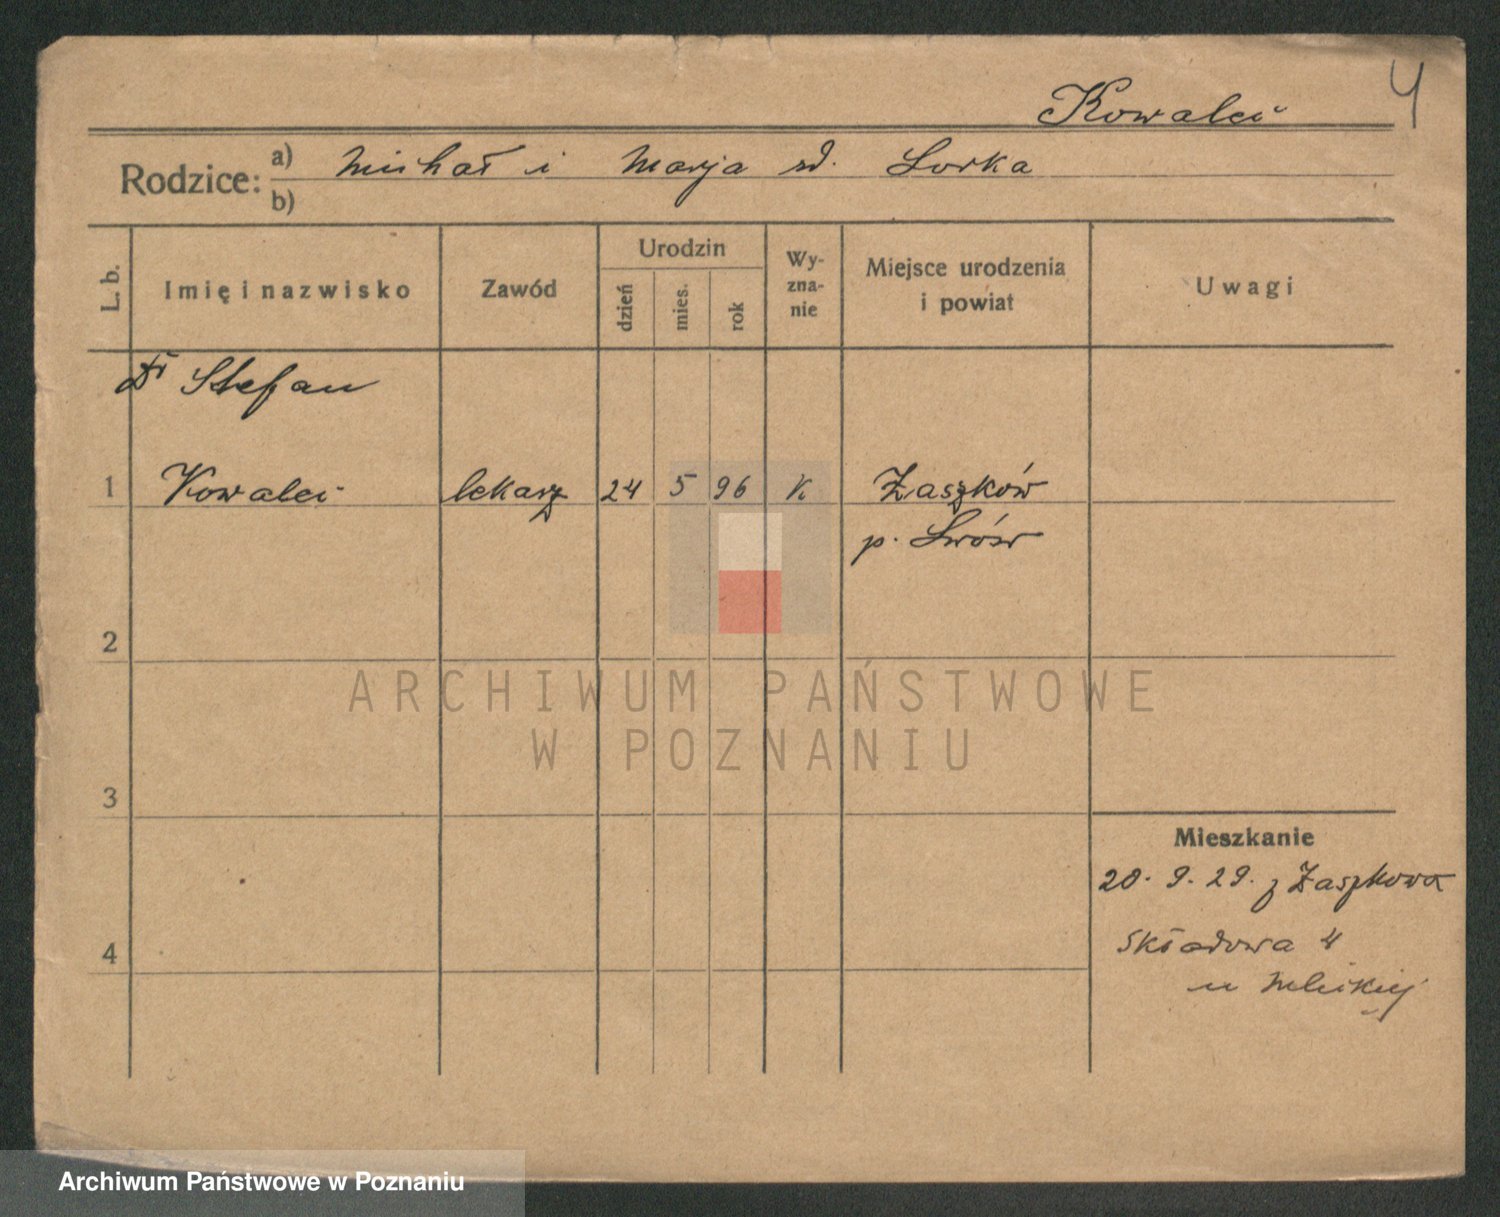 Kowalci
4
Rodzice:
a) Michał i Marja zd. Lorka
b)
L. b.
Imię i nazwisko
Zawód
Urodzin
dzień
mies.
rok
Wy-
zna-
nie
Miejsce urodzenia
i powiat
Uwagi
Dr Stefan
1 Kowalci lekarz 24 5 96 k Zaszków
p. Lwów
2
3
4
Mieszkanie
20. 9. 29. z Zaszkowa
Składowa 4
u
ARCHIWUM PAŃSTWOWE
W POZNANIU
Archiwum Państwowe w Poznaniu